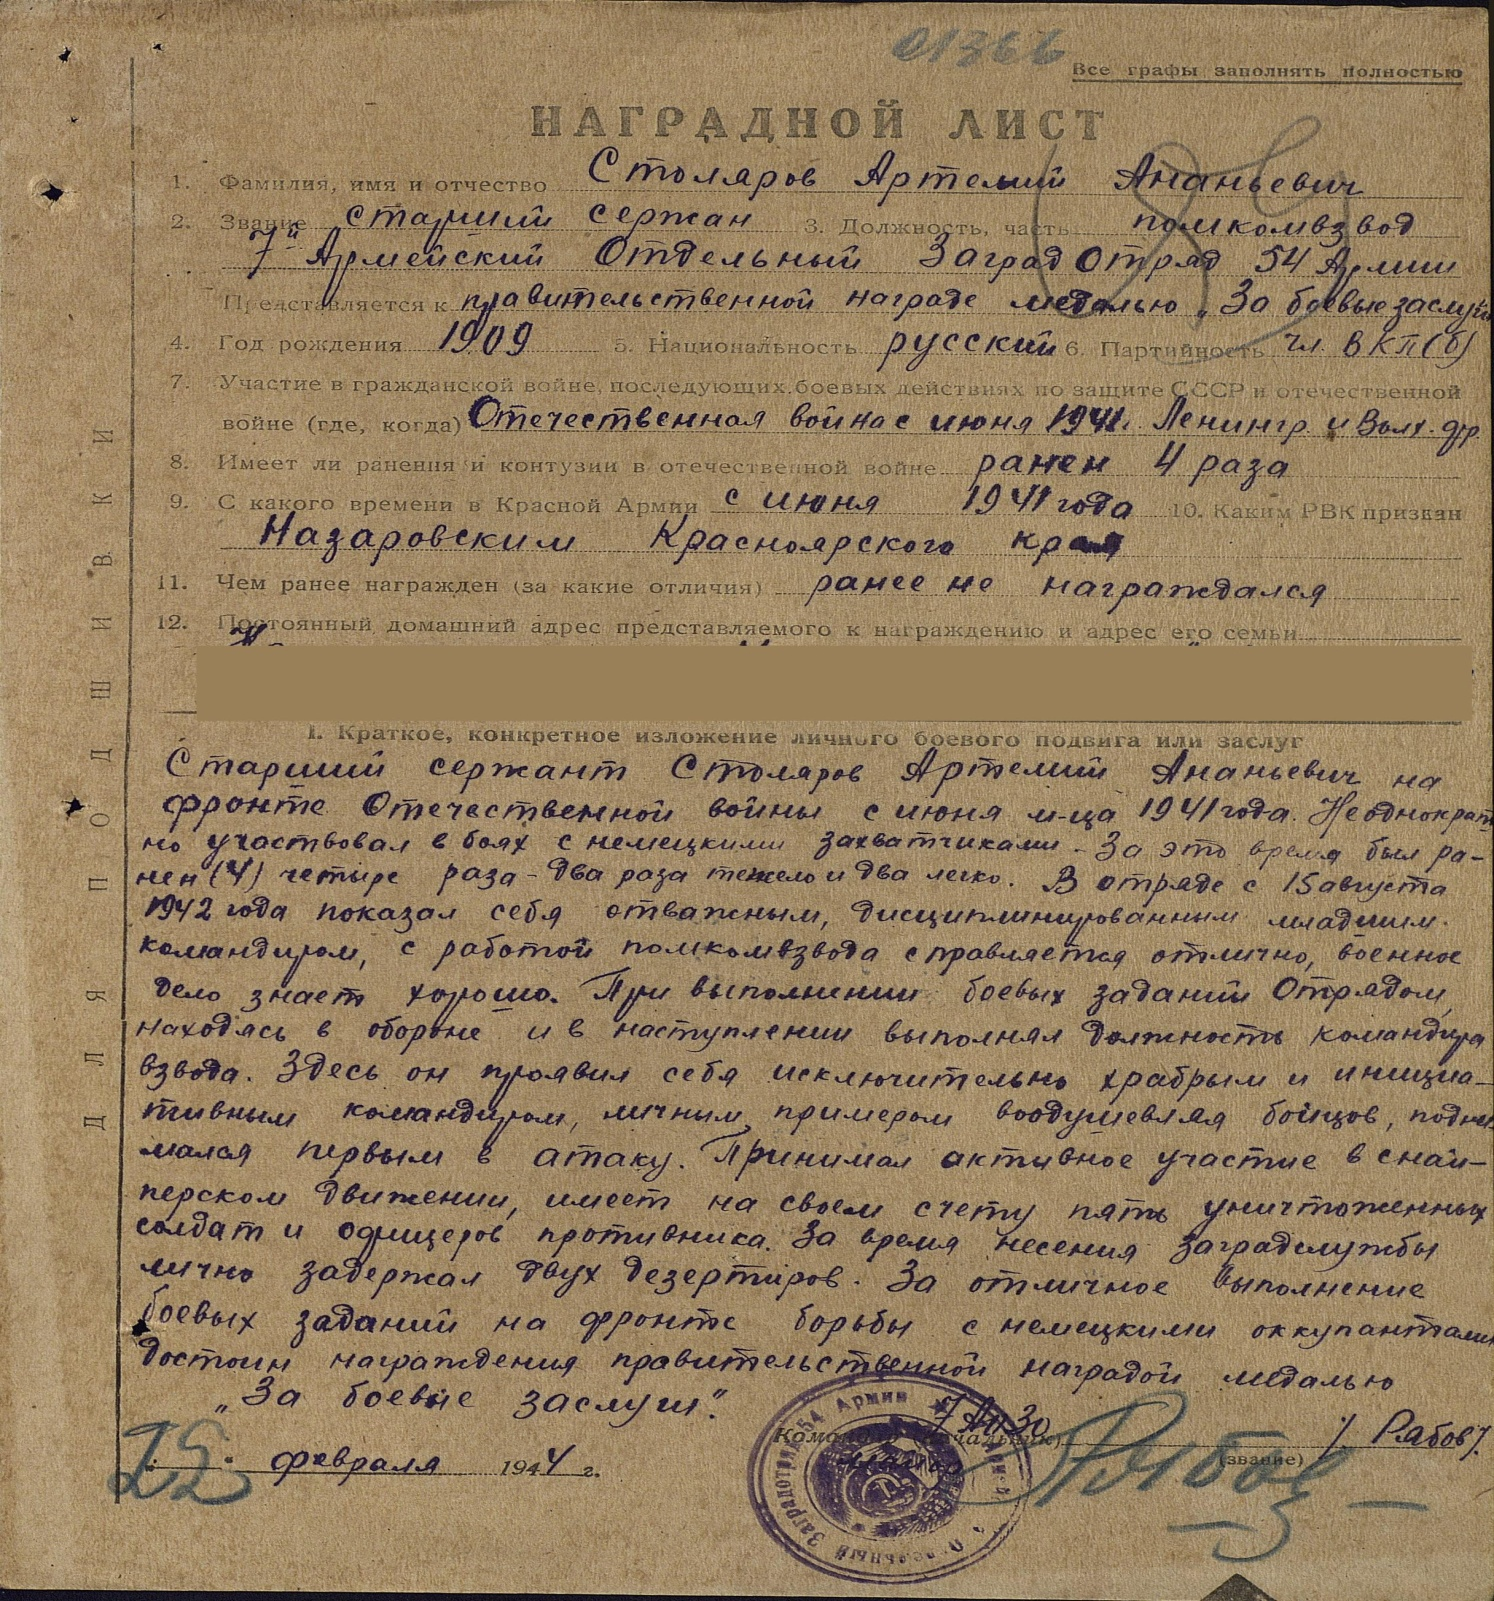 01366
Все графы заполнять полностью
НАГРАДНОЙ ЛИСТ
1. Фамилия, имя и отчество Столяров Артемий Ананьевич
2. Звание старший сержан 3. Должность, часть помкомвзвод
7й Армейский Отдельный Заградотряд 54 Армии
Представляется к правительственной награде медалью „За боевые заслуги
4. Год рождения 1909 5. Национальность русский 6. Партийность чл. ВКП(б)
7. Участие в гражданской войне, последующих боевых действиях по защите СССР и отечественной
войне (где, когда) Отечественная война с июня 1941г. Ленингр. и Волх. фр.
8. Имеет ли ранения и контузии в отечественной войне ранен 4 раза
9. С какого времени в Красной Армии с июня 1941 года 10. Каким РВК призван
Назаровским Красноярского края
11. Чем ранее награжден (за какие отличия) ранее не награждался
12. Постоянный домашний адрес представляемого к награждению и адрес его семьи
I. Краткое, конкретное изложение личного боевого подвига или заслуг
Старший сержант Столяров Артемий Ананьевич на
фронте Отечественной войны с июня м-ца 1941 года. Неоднократ
но участвовал в боях с немецкими захватчиками. За это время был ра-
нен (4) четыре раза - два раза тяжело и два легко. В отряде с 15 августа
1942 года показал себя отважным, дисциплинированным младшим
командиром, с работой помкомвзвода справляется отлично, военное
дело знает хорошо. При выполнении боевых заданий Отрядом,
находясь в обороне и в наступлении выполнял должность командира
взвода. Здесь он проявил себя исключительно храбрым и инициа-
тивным командиром, личным примером воодушевляя бойцов, подни-
мался первым в атаку. Принимал активное участие в снай-
перском движении, имеет на своем счету пять уничтоженных
солдат и офицеров противника. За время несения заградслужбы
лично задержал двух дезертиров. За отличное выполнение
боевых заданий на фронте борьбы с немецкими оккупантами
достоин награждения правительственной наградой медалью
„За боевые заслуги".
Командир (начальник) /Рябов/
(звание)
25 февраля 1944 г.
Рябов
Отдельный Заградотряд 54 Армии
ДЛЯ ПОДШИВКИ